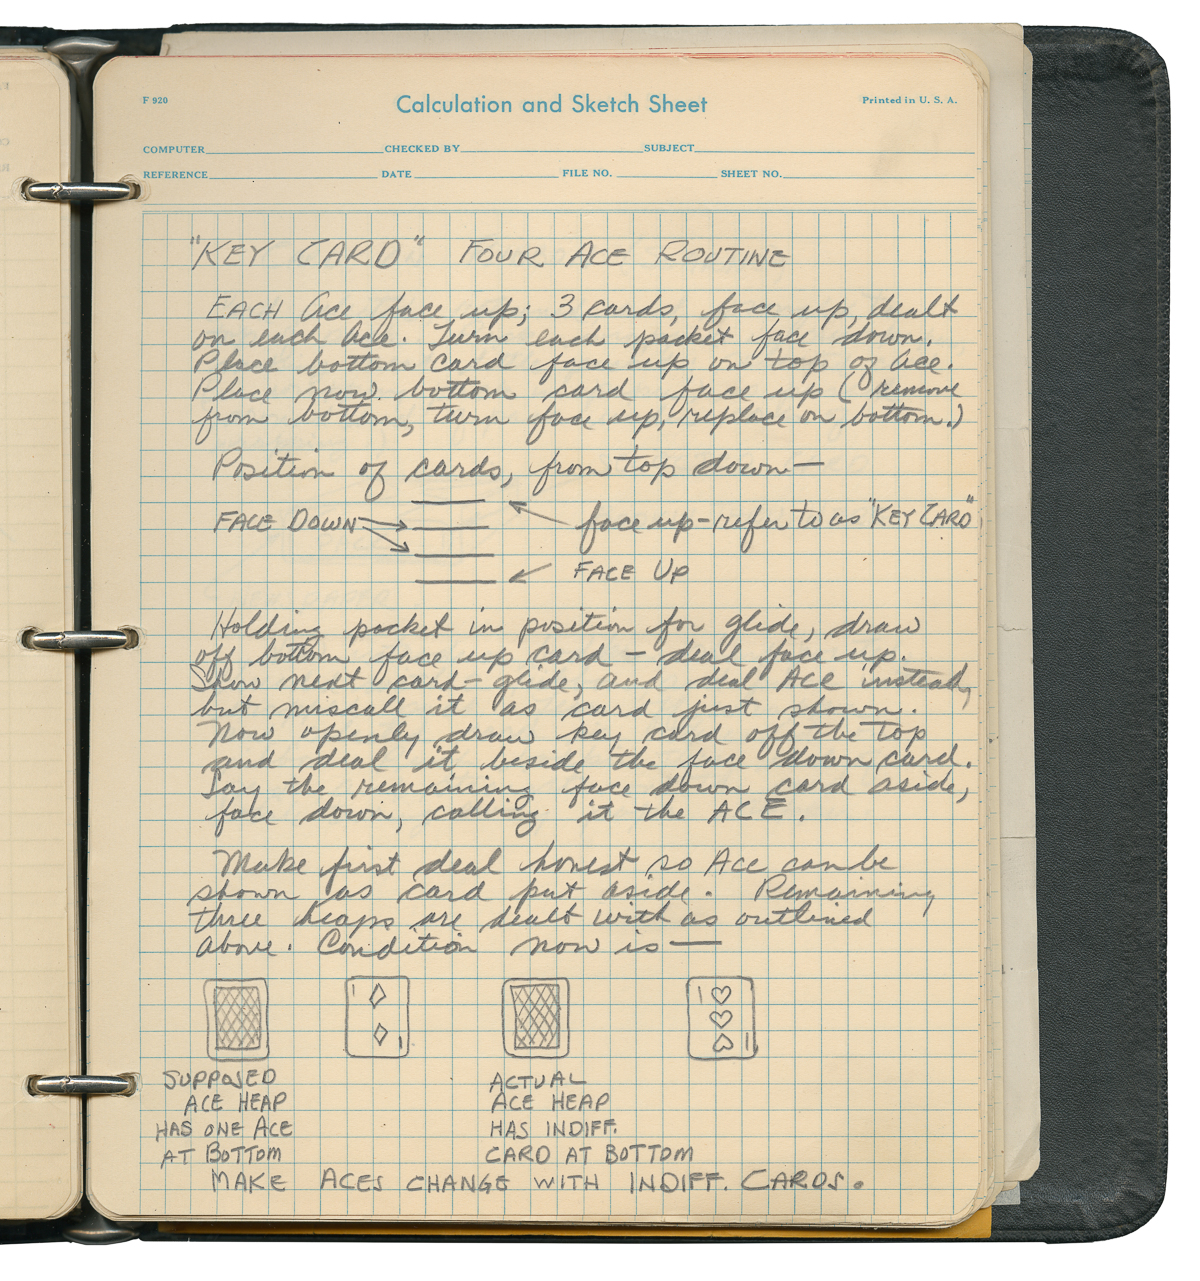 F 920
Calculation and Sketch Sheet
Printed in U. S. A.
COMPUTER CHECKED BY SUBJECT
REFERENCE DATE FILE NO. SHEET NO.
"KEY CARD" FOUR ACE ROUTINE
EACH Ace face up; 3 cards, face up, dealt
on each Ace. Turn each packet face down.
Place bottom card face up on top of Ace.
Place now bottom card face up (remove
from bottom, turn face up, replace on bottom.)
Position of cards, from top down—
FACE DOWN face up - refer to as "KEY CARD"
FACE UP
Holding packet in position for glide, draw
off bottom face up card - deal face up.
Show next card - glide, and deal Ace instead,
but miscall it as card just shown.
Now openly draw key card off the top
and deal it beside the face down card.
Lay the remaining face down card aside,
face down, calling it the ACE.
Make first deal honest so Ace can be
shown as card put aside. Remaining
three heaps are dealt with as outlined
above. Condition now is —
SUPPOSED
ACE HEAP
HAS ONE ACE
AT BOTTOM
ACTUAL
ACE HEAP
HAS INDIFF.
CARD AT BOTTOM
MAKE ACES CHANGE WITH INDIFF. CARDS.